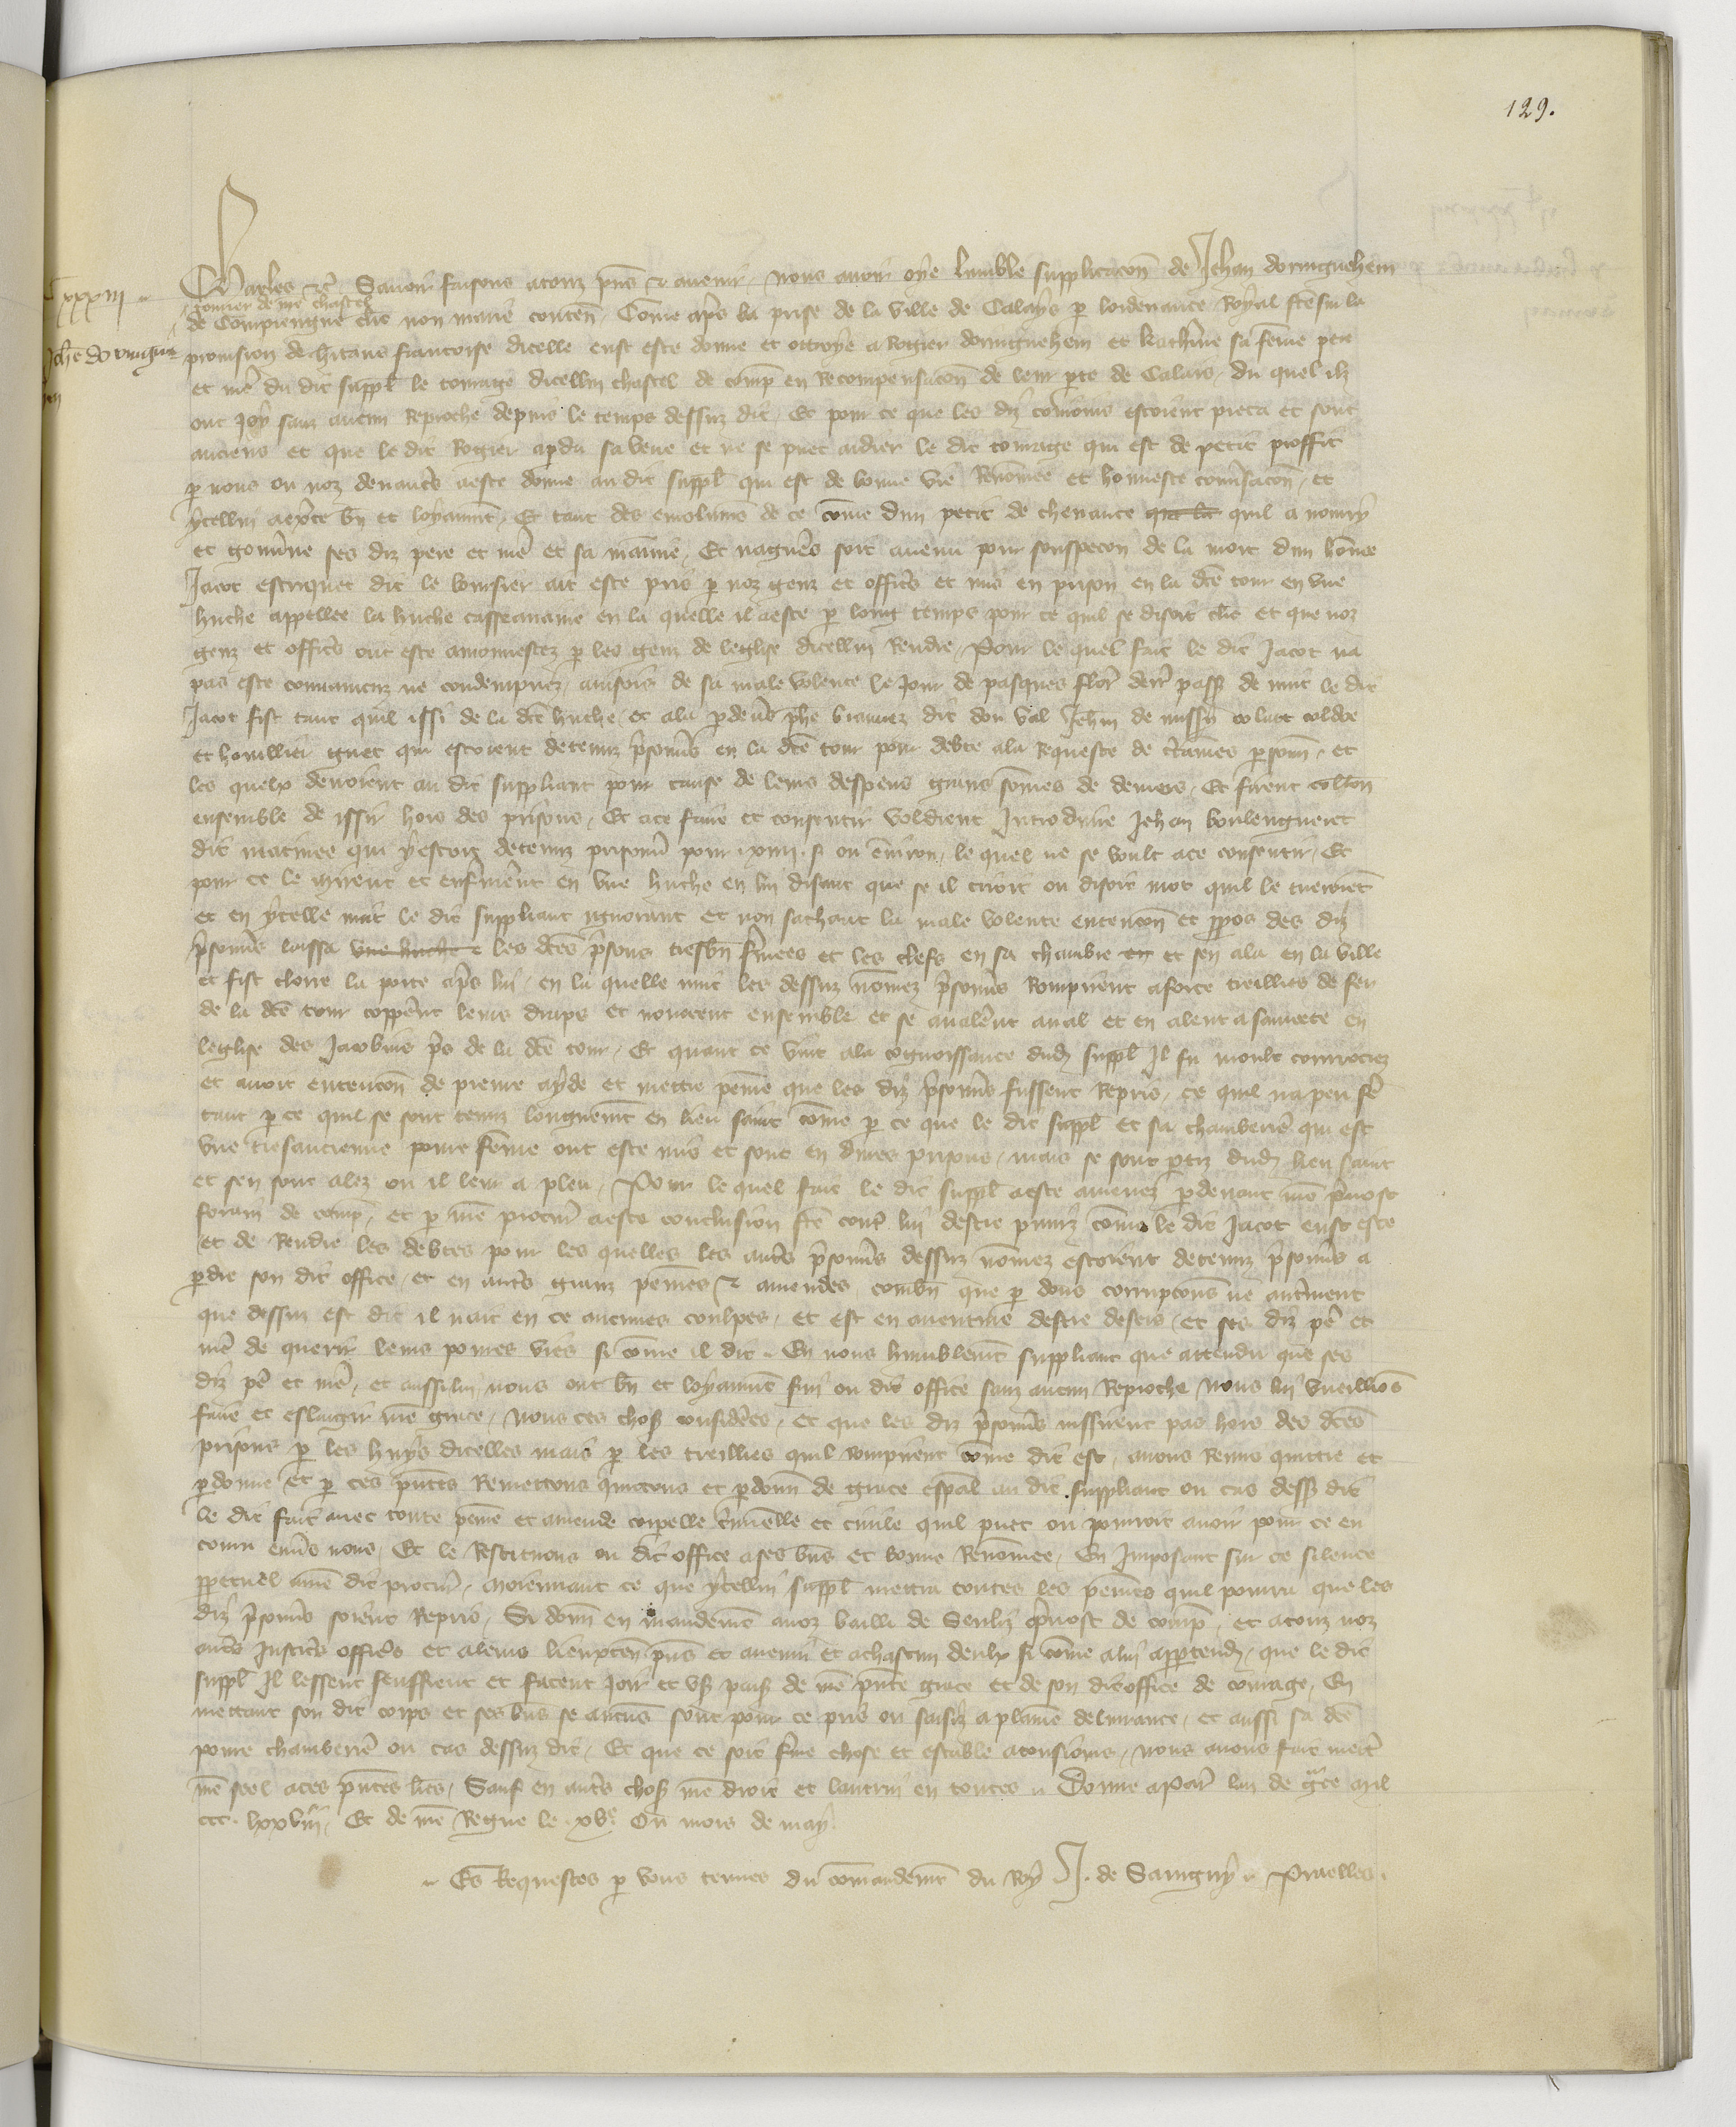 129.
Cxxxiii
Charles etc. Savoir faisons a touz pns et avenir, nous avoir oye lumble supplicacon de Jehan doringuehem
tourier de nre chastel
de Compiengne clerc non marie conten. Come apres la prise de la ville de Calays p lordenance Royal fcte sur la
Jehan doringue
hen
provision de habitans francoise dicelle eust este donne et ottroye a Rogier doringuehem et katherine sa feme pere
et mere du dit suppl le tourage dicellui chastel de comp en Recompensacon de leur pte de Calais, du quel ilz
ont joy sanz aucun Reproche depuis le temps dessuz dit, Et pour ce que les diz conioins estoient pieca et sont
anciens et que le dit Rogier a pdu sa veue et ne se puet aidier le dit tourage qui est de petit proffit
p nous ou noz devancs a este donne au dit suppl qui est de bonne vie Renomee et honneste conversacon, et
ycellui a exerce bn et loyaumt, Et tant des emolumens de ce come dun petit de chevance quil a nourry
et gouverne ses diz pere et mere et sa mainnie, Et nagueres soit avenu pour souspecon de la mort dun home
Jacot estriquet dit le boursier ait este pris p noz genz et offics et mis en prison en la dcte tour en une
huche appellee la huche cassecaname en la quelle il a este p long temps pour ce quil se disoit clerc et que noz
genz et offics ont este amonnestez p les genz de leglise dicellui Rendre, Pour le quel fait le dit Jacot na
pas este convaincuz ne condempnez, ainsois de sa male volente le jour de pasques flor derr pass de nuit le dit
Jacot fist tant quil issi de la dcte huche, et ala p devs phe viannez dit dou val Jehan de nussy colart coldoe
et houillier guet qui estoient detenuz prisonns en la dcte tour pour debte a la Requeste de ctaines psonn, et
les quelx devoient au dit suppliant pour cause de leurs despens grans somes de deniers, Et firent colon
ensemble de issir hors des prisons, Et a ce faire et consentir voldient Introduire Jehan boulengueret
dit matinee qui y estoit detenuz prisonn pour xiiii s ou environ, le quel ne se voult a ce consentir, Et
pour ce le mirent et enfermerent en une huche en lui disant que se il crioit ou disoit mot quil le tueroient
et en ycelle nuit le dit suppliant ygnorant et non sachant la male volente entencon et ppos des diz
prisonns laissa les dctes prisons tresbn fermees et les clefs en sa chambre et sen ala en la ville
et fist clorre la porte apres lui, en la quelle nuit les dessuz nomez prisonns Rompirent a force treillies de fer
de la dcte tour copperent leurs draps et nouerent ensemble et se avalerent aval et en alerent a sauvete en
leglise des Jacobins pres de la dcte tour, Et quant ce vint a la cognoissance dudit suppl Il fu moult courociez
et avoit entencon de prenre ayde et mettre peine que les diz prisonns fussent Repris, ce quil na peu fe
tant p ce quil se sont tenuz longuemt en lieu saint come p ce que le dit suppl et sa chamberiere qui est
une tresancienne povre feme ont este mis et sont en divses prisons, mais se sont ptiz dudit lieu saint
et sen sont alez ou il leur a pleu, Pour le quel fait le dit suppl a este amenez p devant nre prevost
forain de comp, et p nre procur a este conclusion fcte contre lui destre puniz come le dit Jacot eust este
et de Rendre les debtes pour les quelles les autres prisonns dessuz nomez estoient detenuz prisonns a
pdre son dit office, et en autres granz peines et amendes, combn que p dons corrupcons ne autrement
que dessuz est dit il nait en ce aucunes coulpes, et est en aventure destre desers, et ses diz pere et
mere de querir leurs povres vies si come il dit. En nous humblemt suppliant que attendu que ses
diz pere et mere, et aussi lui nous ont bn et loyaumt servi ou dit office sanz aucun Reproche Nous lui vueillions
faire et eslargir nre grace, Nous ces choses consideres, et que les diz prisonns nissirent pas hors des dctes
prisons p les huys dicelles mais p les treillies quil rompirent come dit est, avons Remis quittie et
pdonne et p ces pntes Remettons quittons et pdonn de grace espal au dit suppliant ou cas dess dit
le dit fait avec toute peine et amende corpelle criminelle et civile quil puet ou pourroit avoir pour ce en
couru envers nous, Et le Restituons ou dit office a ses bns et bonne Renomee, En Imposant sur ce silence
ppetuel a nre dit procur, moiennant ce que ycellui suppl mettra toutes les peines quil pourra que les
diz prisonns soient Repris, Si donn en mandemt a noz bailli de Senliz prevost de comp, et a touz noz
autres Justics offics et a leurs lieuxten pns et avenir et a chascun deulx si come a lui appartendra, que le dit
suppl Il lessent seuffrent et facent joir et user paisi de nre pnte grace et de son dit office de tourage, En
mettant son dit corps et ses bns se aucuns sont pour ce pris ou saisiz a plaine delivrance, et aussi sa dcte
povre chamberiere ou cas dessuz dit, Et que ce soit ferme chose et estable a tousiours, nous avons fait mettre
nre seel a ces pntes lres, Sauf en autres choses nre droit et lautrui en toutes. Donne a Paris lan de grace mil
ccc. lxxviii, Et de nre Regne le xve. Ou mois de may.
Es Requestes p vous tenues du comandemt du Roy J. de Savigny. Praelles.